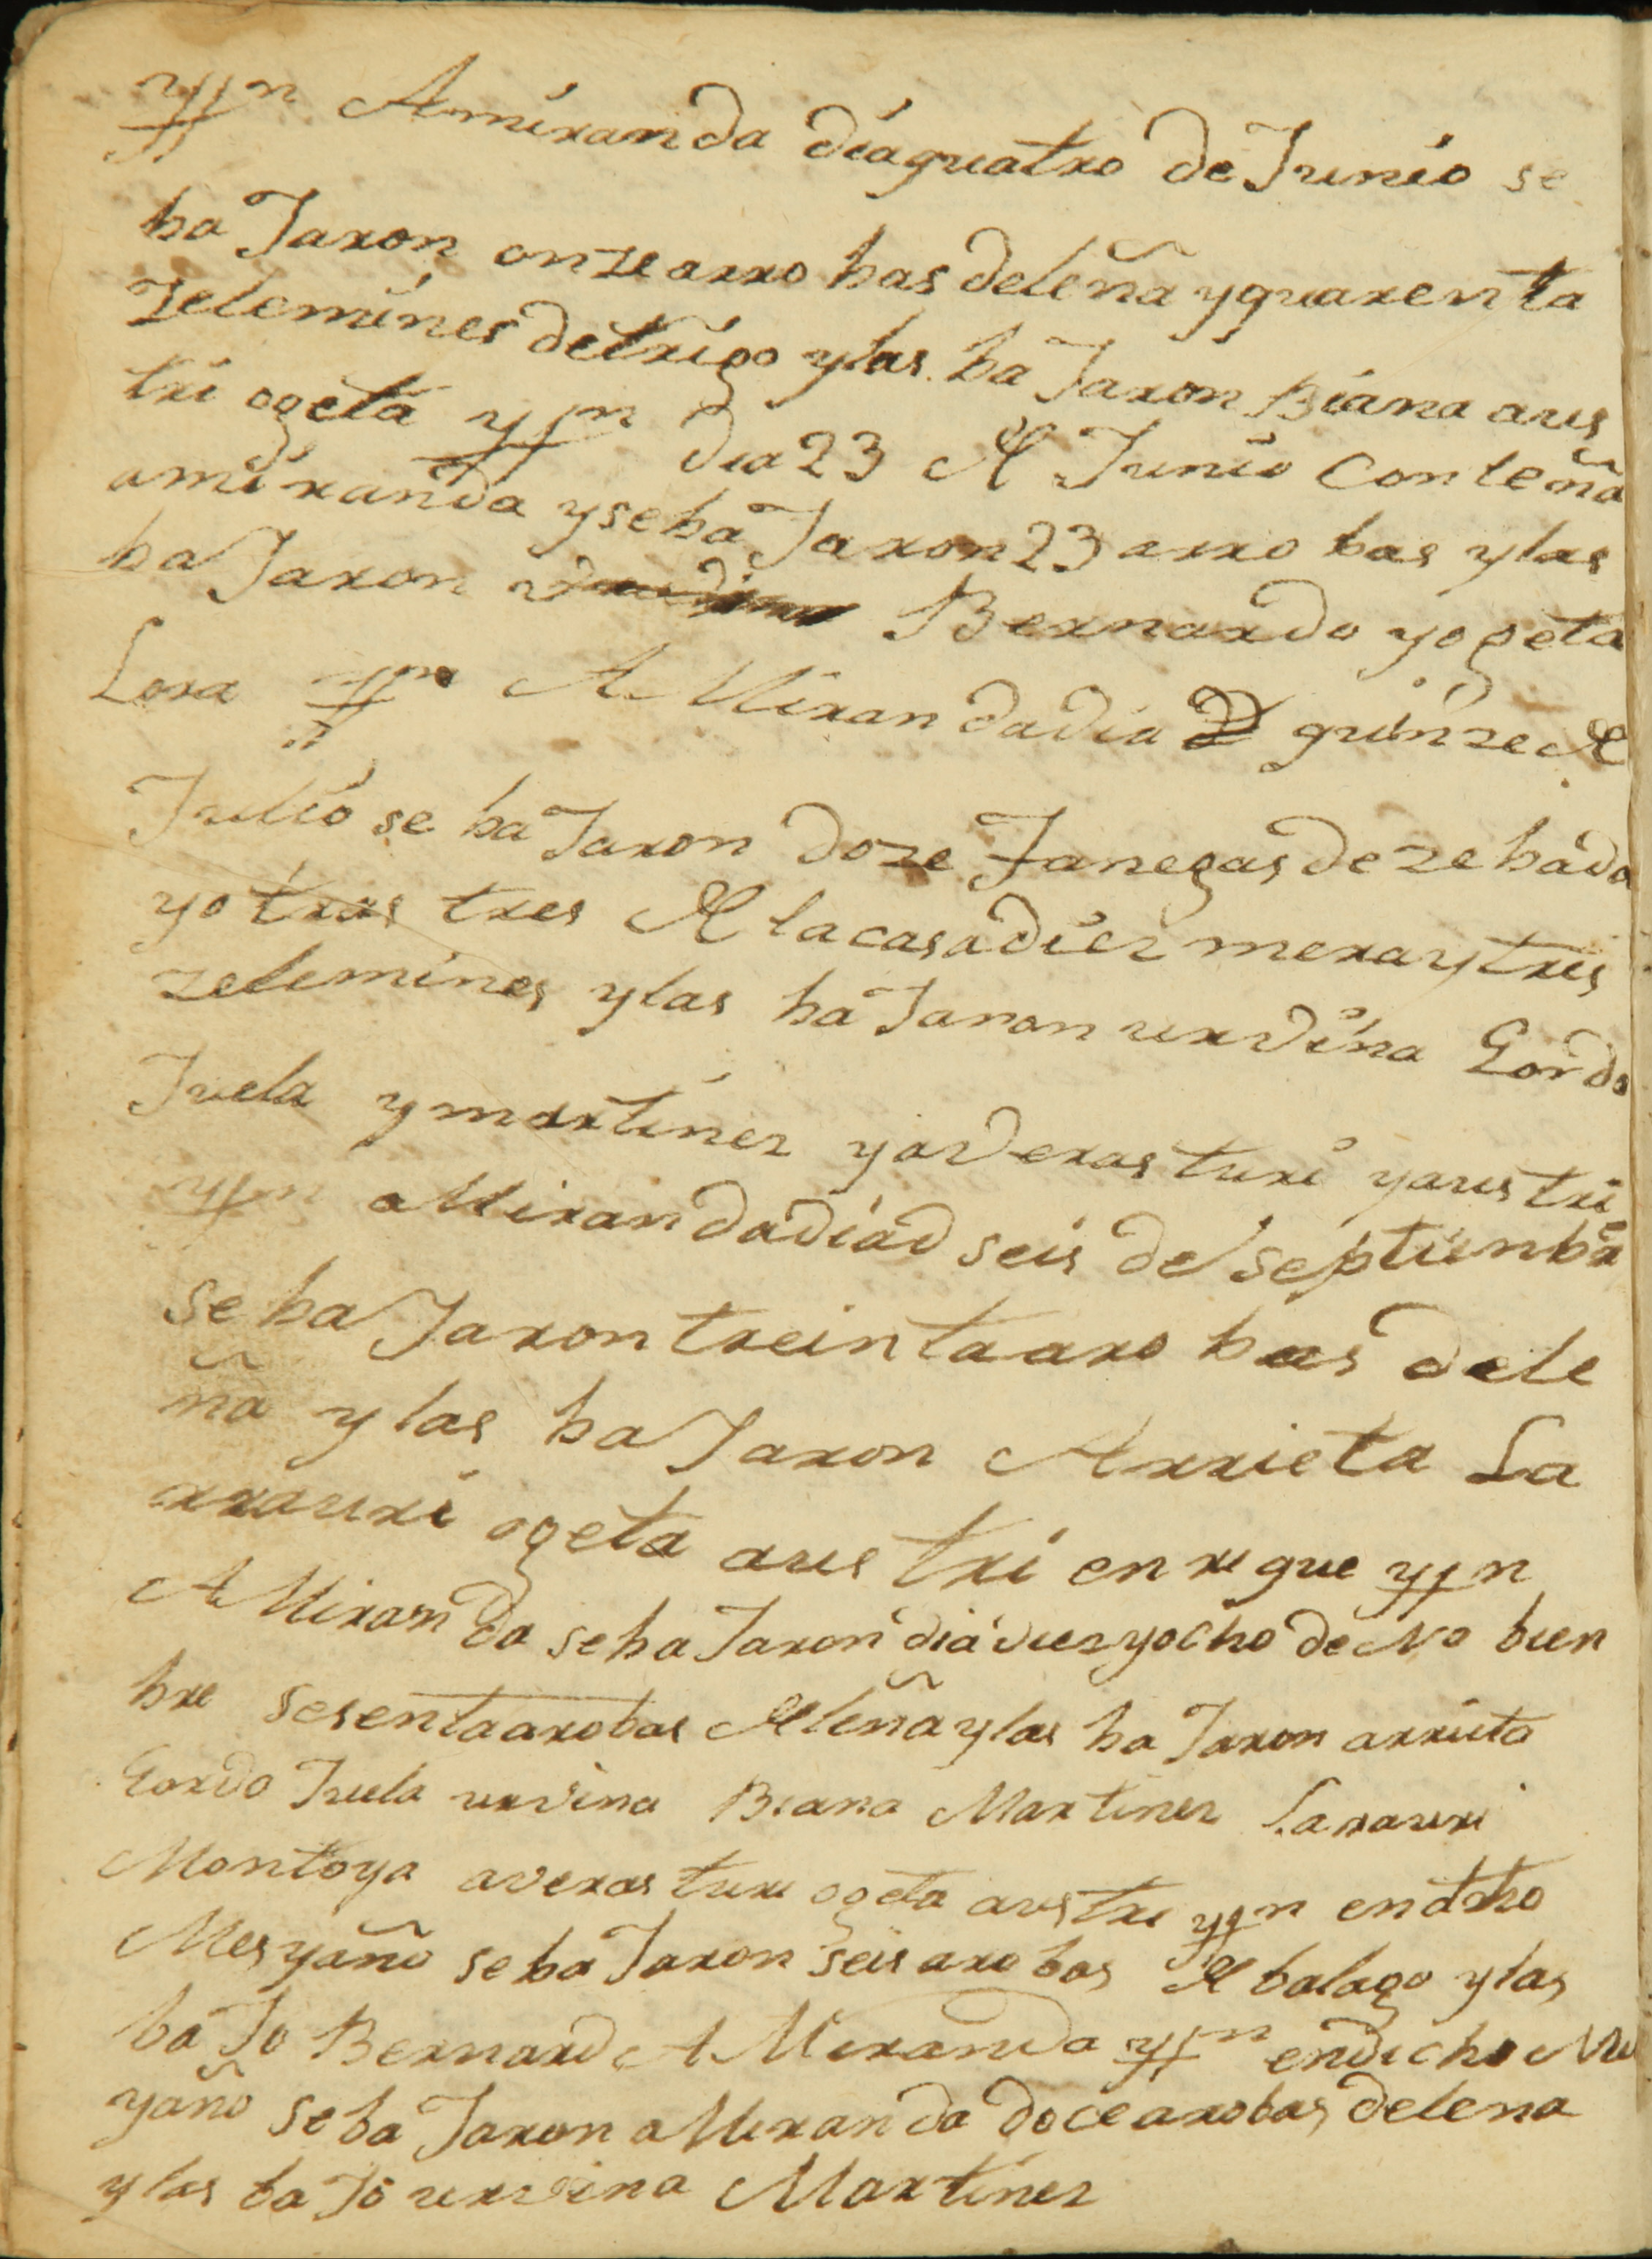 yttn Amiranda diaquatro de Junio se
ba Jaron onze arro bas deleña yquarenta
zelemines detrigo ylas ba Jaron Biana aus
tri ogeta yttn dia 23 de Junio Con leña
amiranda yseba Jaron 23 arro bas ylas
ba Jaron Bernardo yogeta
Lora yttn A Miran dadia quinze de
Julio se ba Jaron doze Fanegas de zebada
yotras tres de lacasadiez meraytres
zelemines ylas ba Jaron urvina Gordo
Juela ymartinez yaverasturi yaustri
yttn aMiran dadiad seis de septienbr
seba Jaron treintaaro bas dele
ña ylas ba Jaron Arrieta La
rrauri ogeta aus tri enrique yttn
AMiranda seba Jaron dia diez yocho de No bien
bre sesentaarobas de leña ylas ba Jaron arrieta
Gordo Juela urvina Biana Martinez Larauri
Montoya averasturi ogeta austri yttn endcho
Mes yaño seba Jaron seis arobas de balago ylas
ba Jo Bernard A Miranda yttn endicho Mes
yaño seba Jaron aMiranda docearobas delena
ylas ba Jo urvina Martinez